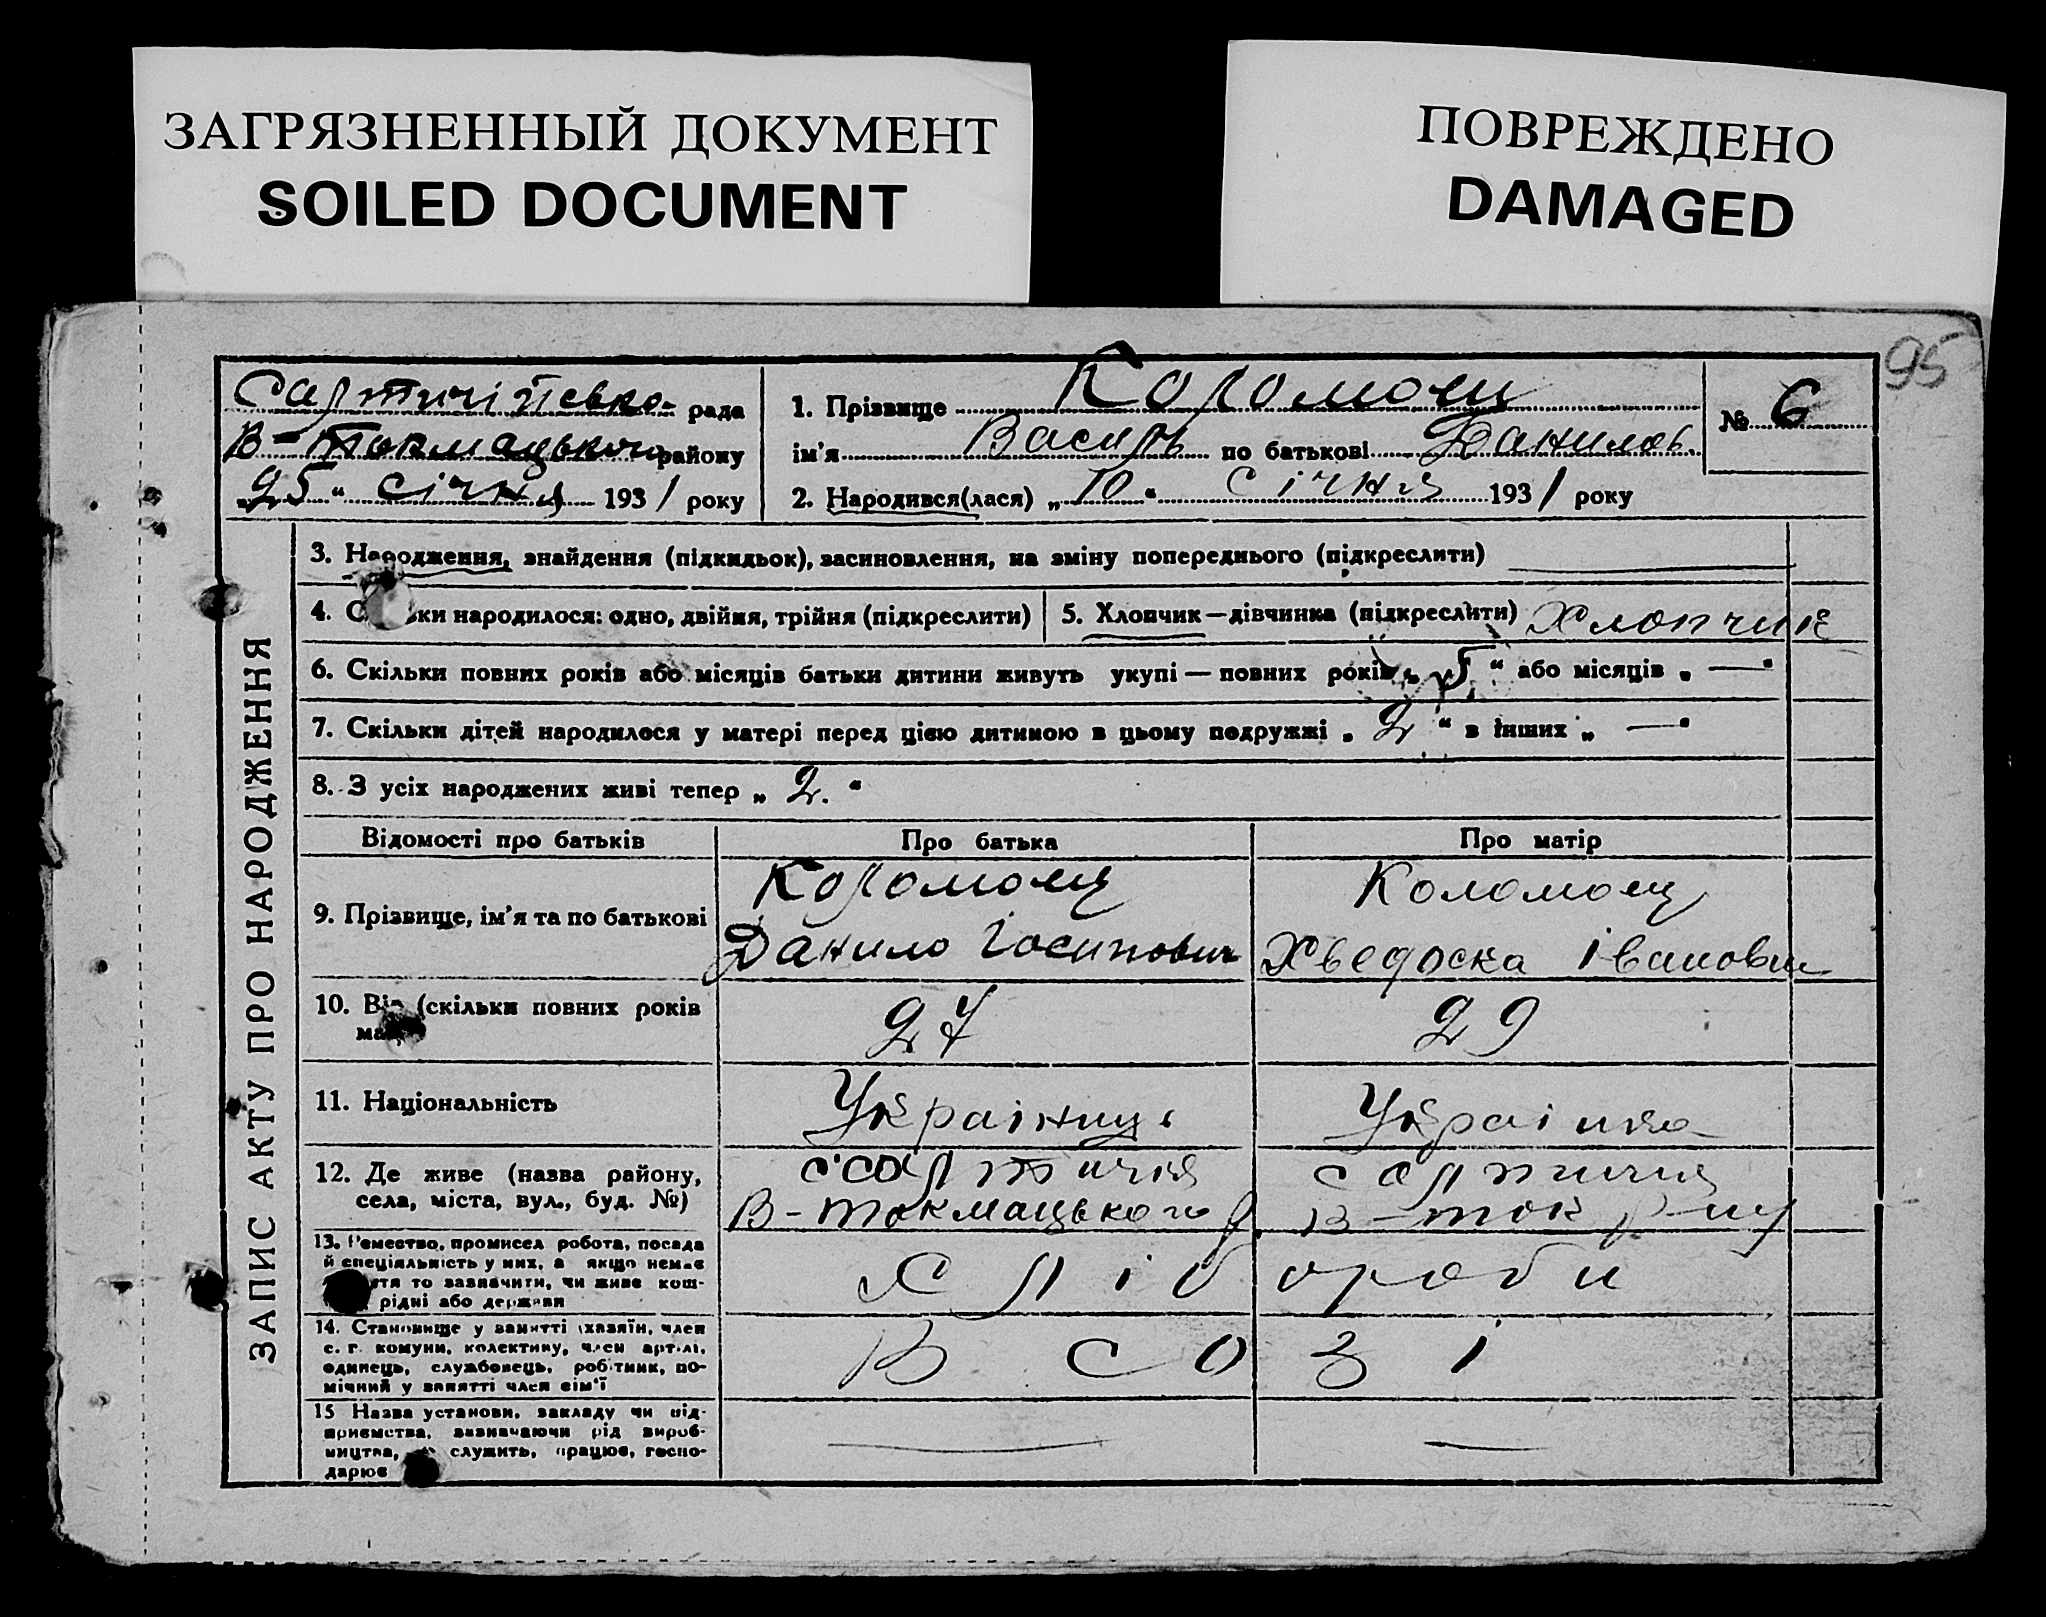 ЗАГРЯЗНЕННЫЙ ДОКУМЕНТ
SOILED DOCUMENT
ПОВРЕЖДЕНО
DAMAGED
95
рада
В-Токмацького району
„25“ січня 1931 року
1. Прізвище Коломоєц
ім'я Василь по батькові Данилов.
2. Народився(лася) „10“ січня 1931 року
№ 6
ЗАПИС АКТУ ПРО НАРОДЖЕННЯ
3. Народження, знайдення (підкидьок), засиновлення, на зміну попереднього (підкреслити)
4. Скільки народилося: одно, двійня, трійня (підкреслити)
5. Хлопчик—дівчинка (підкреслити) Хлопчик
6. Скільки повних років або місяців батьки дитини живуть укупі — повних років „5“ або місяців „—“
7. Скільки дітей народилося у матері перед цією дитиною в цьому подружжі „2“ в інших „—“
8. З усіх народжених живі тепер „2.“
Відомості про батьків
Про батька
Про матір
9. Прізвище, ім'я та по батькові
Коломоєц
Данило Іосипович
Коломоєц
Хведоска Івановна
10. Вік (скільки повних років
має)
27
29
11. Національність
Українць
Українка
12. Де живе (назва району,
села, міста, вул., буд. №)
В-токмацького р.
В-ток р-ну
13. Ремество, промисел робота, посада
й спеціяльність у них, а якщо немає
то зазначити, чи живе кош-
рідні або держави
Хлібороби
14. Становище у занятті (хазяїн, член
с. г. комуни, колективу, член артілі,
одинець, службовець, робітник, по-
мічний у занятті член сім'ї
В СОЗі
15 Назва установи, закладу чи під-
приємства, визначаючи рід вироб-
ництва, де служить, працює, госпо-
дарює
—
—